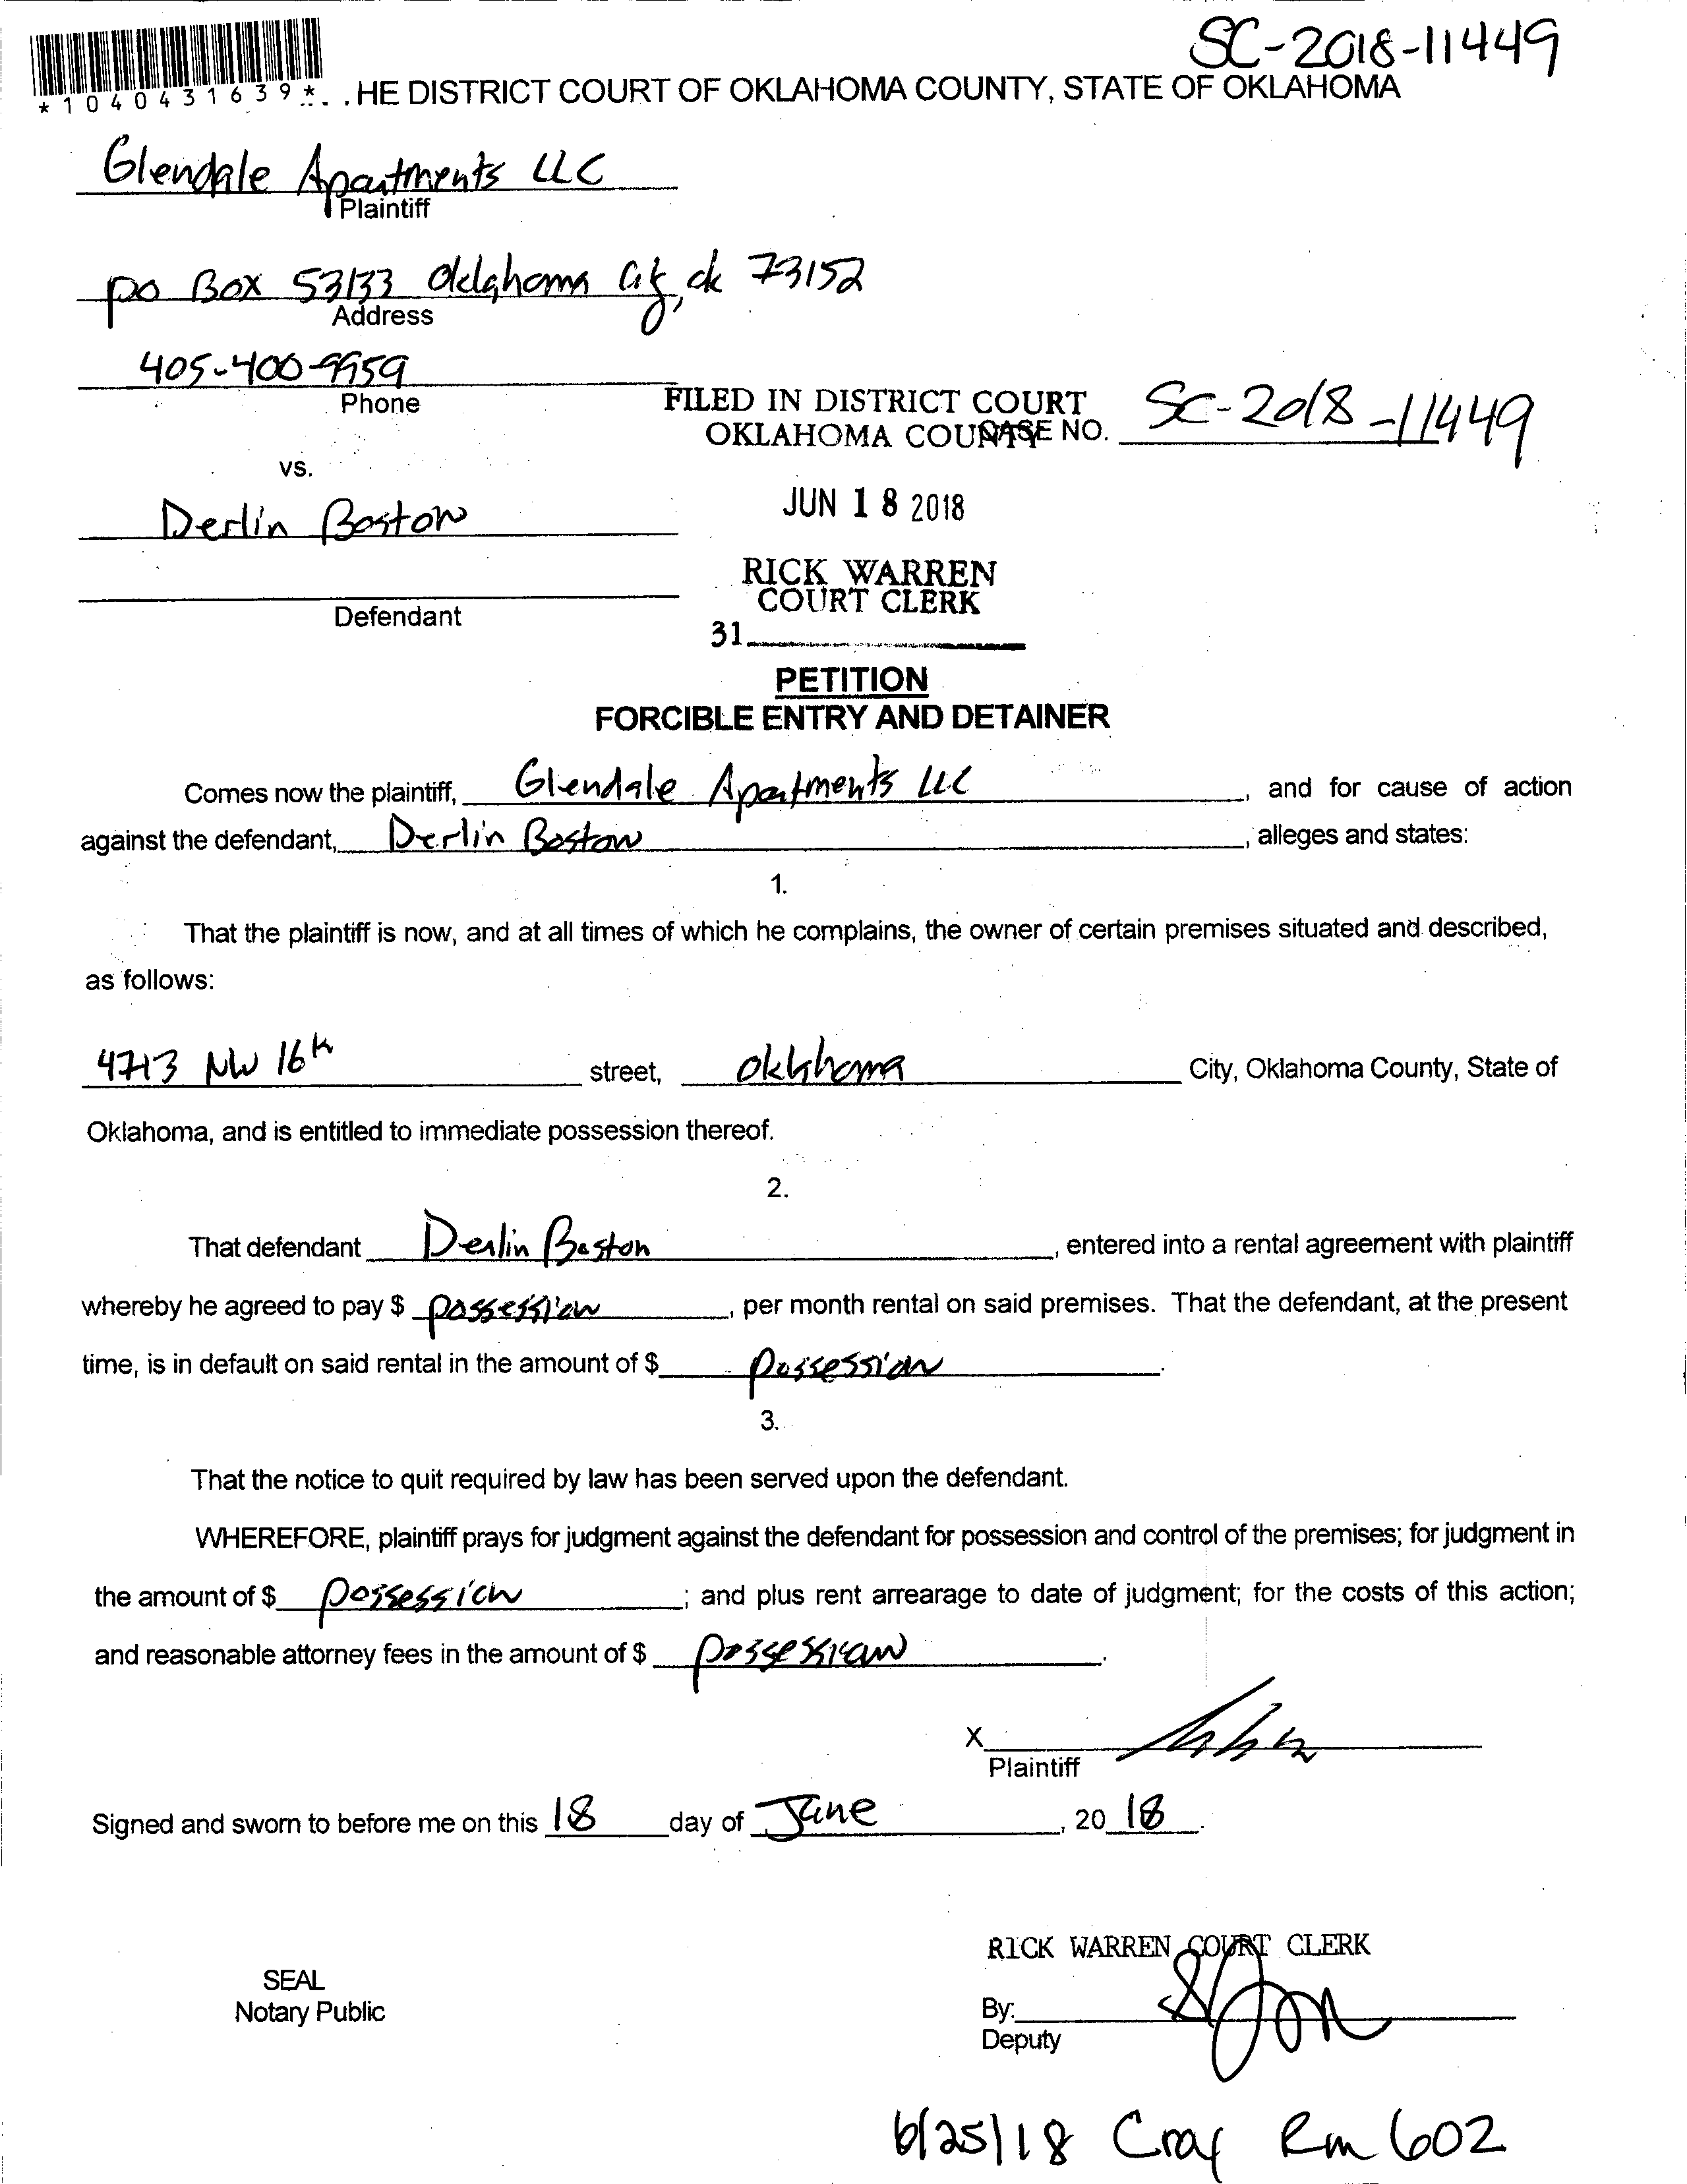 SC-2018-11449
*1040431639*. . .HE DISTRICT COURT OF OKLAHOMA COUNTY, STATE OF OKLAHOMA
Glendale Apartments LLC
Plaintiff
po Box 53133 Oklahoma City, ok 73152
Address
405-400-9959
Phone
FILED IN DISTRICT COURT
OKLAHOMA COUNTY
CASE NO. SC-2018-11449
vs.
JUN 18 2018
Derlin Boston
RICK WARREN
COURT CLERK
Defendant
31
PETITION
FORCIBLE ENTRY AND DETAINER
Comes now the plaintiff, Glendale Apartments LLC, and for cause of action
against the defendant, Derlin Boston, alleges and states:
1.
That the plaintiff is now, and at all times of which he complains, the owner of certain premises situated and described,
as follows:
4713 NW 16th street, Oklahoma City, Oklahoma County, State of
Oklahoma, and is entitled to immediate possession thereof.
2.
That defendant Derlin Boston, entered into a rental agreement with plaintiff
whereby he agreed to pay $ possession, per month rental on said premises. That the defendant, at the present
time, is in default on said rental in the amount of $ possession.
3.
That the notice to quit required by law has been served upon the defendant.
WHEREFORE, plaintiff prays for judgment against the defendant for possession and control of the premises; for judgment in
the amount of $ possession; and plus rent arrearage to date of judgment; for the costs of this action;
and reasonable attorney fees in the amount of $ possession.
X
Plaintiff
Signed and sworn to before me on this 18 day of June, 20 18.
RICK WARREN COURT CLERK
SEAL
Notary Public
By:
Deputy
6/25/18 Rm 602